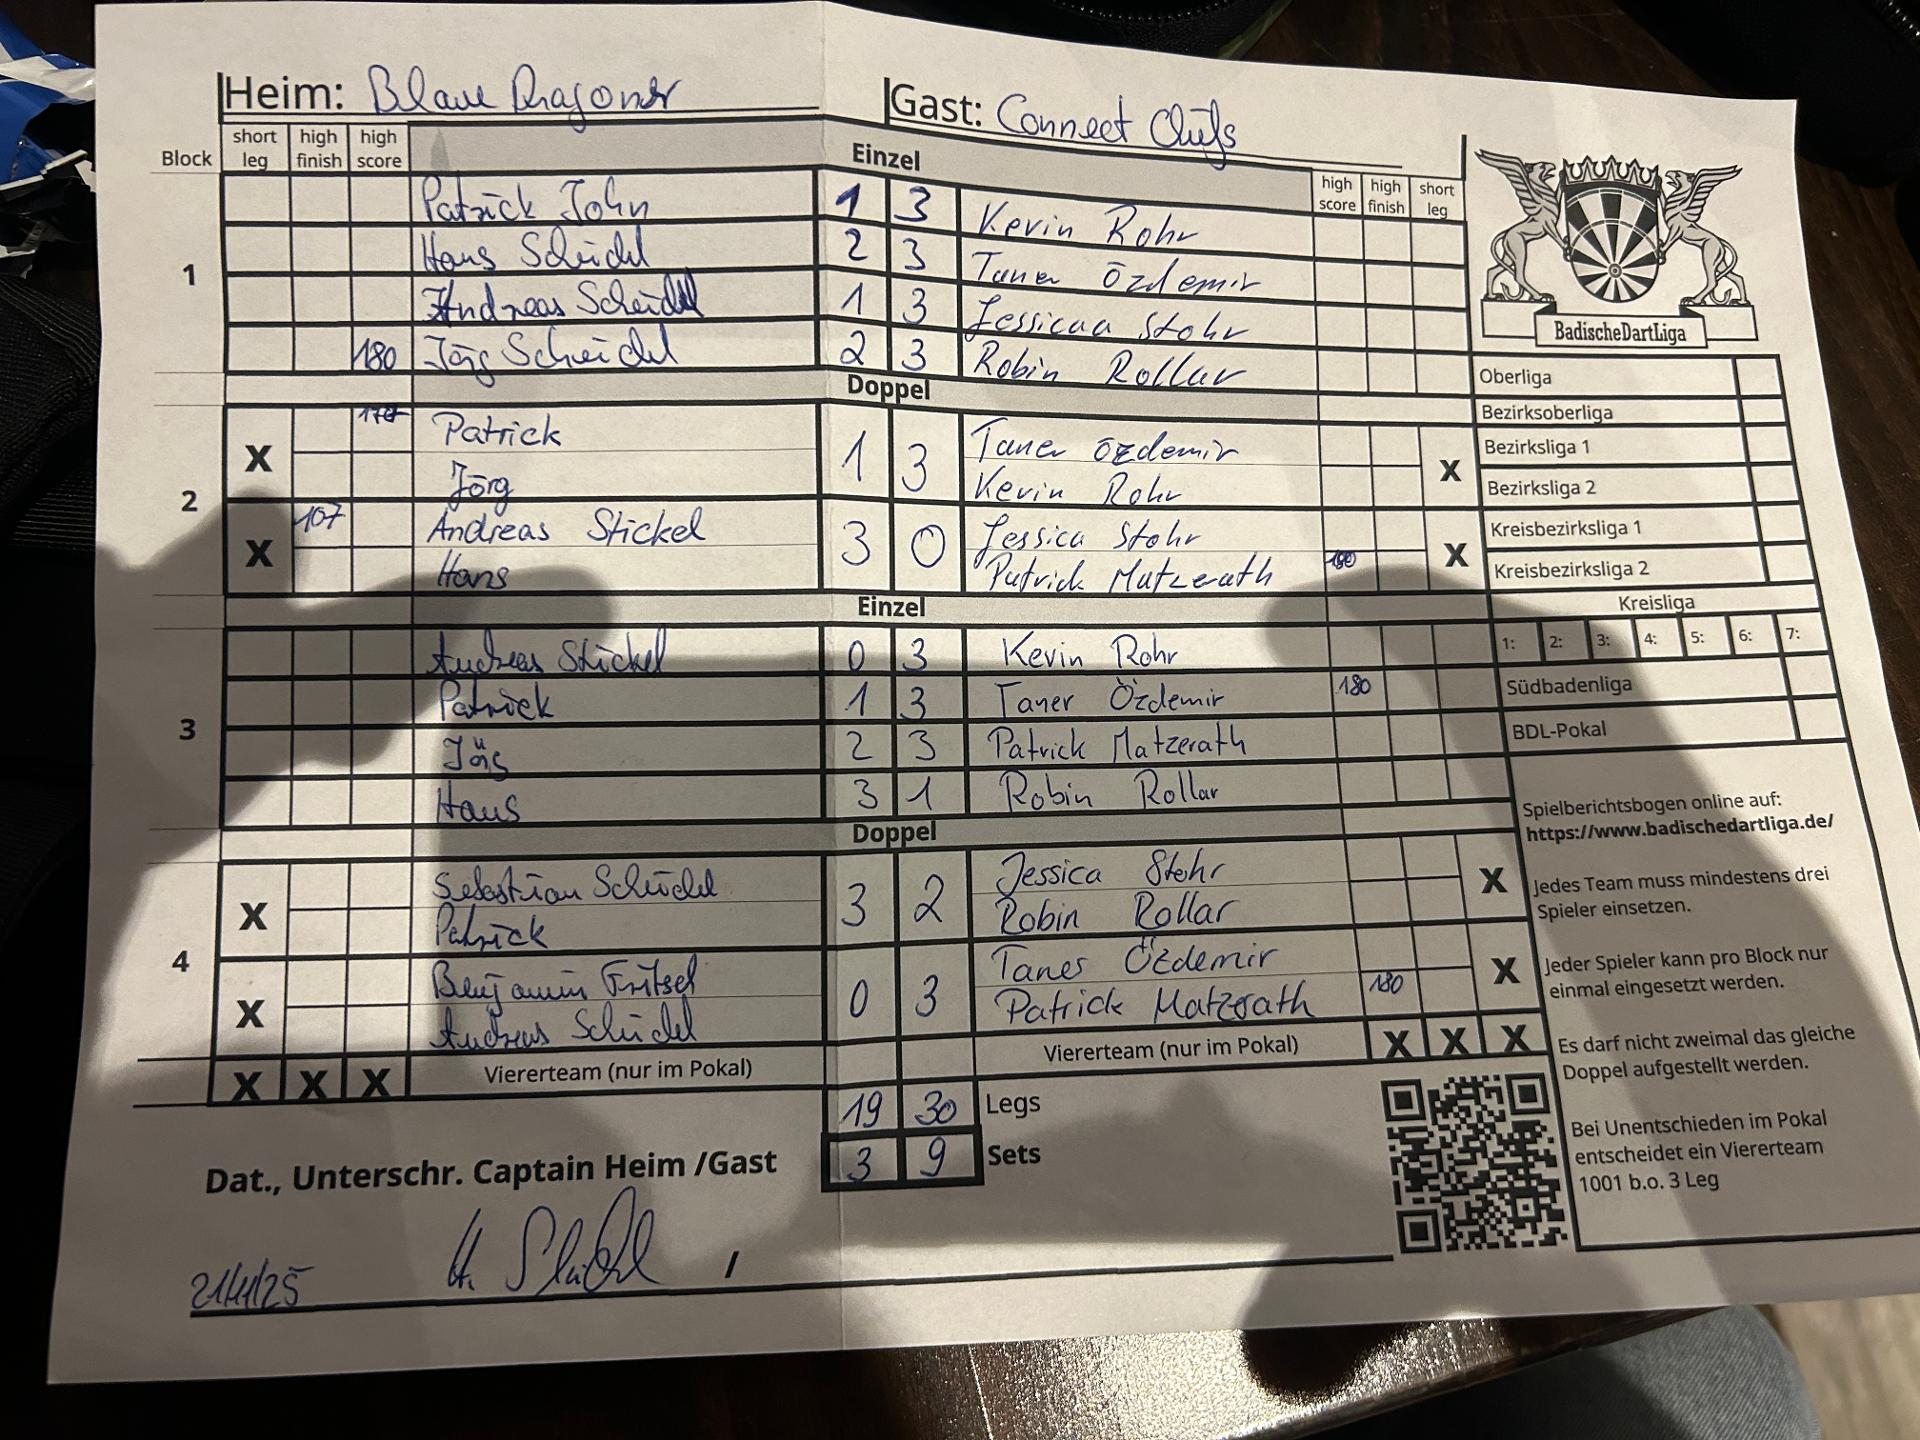 Heim: Blaue Dragoner Gast: Connect Chiefs
Block short leg high finish high score Einzel high score high finish short leg
1
Patrick John 1 3 Kevin Rohr
Hans Scheidel 2 3 Taner Özdemir
Andreas Scheidel 1 3 Jessicaa Stohr
180 Jörg Scheidel 2 3 Robin Rollar
Doppel
2
X Patrick 1 3 Taner Özdemir X
Jörg Kevin Rohr
X 107 Andreas Stickel 3 0 Jessica Stohr X
Hans Patrick Matzerath
Einzel
3
Andreas Stickel 0 3 Kevin Rohr
Patrick 1 3 Taner Özdemir 180
Jörg 2 3 Patrick Matzerath
Hans 3 1 Robin Rollar
Doppel
4
X Sebastian Scheidel 3 2 Jessica Stohr X
Patrick Robin Rollar
X Benjamin Fritsch 0 3 Taner Özdemir X
Andreas Scheidel Patrick Matzerath 180
X X X Viererteam (nur im Pokal) Viererteam (nur im Pokal) X X X
19 30 Legs
3 9 Sets
Dat., Unterschr. Captain Heim /Gast
21/11/25 H. /
BadischeDartLiga
Oberliga
Bezirksoberliga
Bezirksliga 1
Bezirksliga 2
Kreisbezirksliga 1
Kreisbezirksliga 2
Kreisliga
1: 2: 3: 4: 5: 6: 7:
Südbadenliga
BDL-Pokal
Spielberichtsbogen online auf:
https://www.badischedartliga.de/
Jedes Team muss mindestens drei
Spieler einsetzen.
Jeder Spieler kann pro Block nur
einmal eingesetzt werden.
Es darf nicht zweimal das gleiche
Doppel aufgestellt werden.
Bei Unentschieden im Pokal
entscheidet ein Viererteam
1001 b.o. 3 Leg